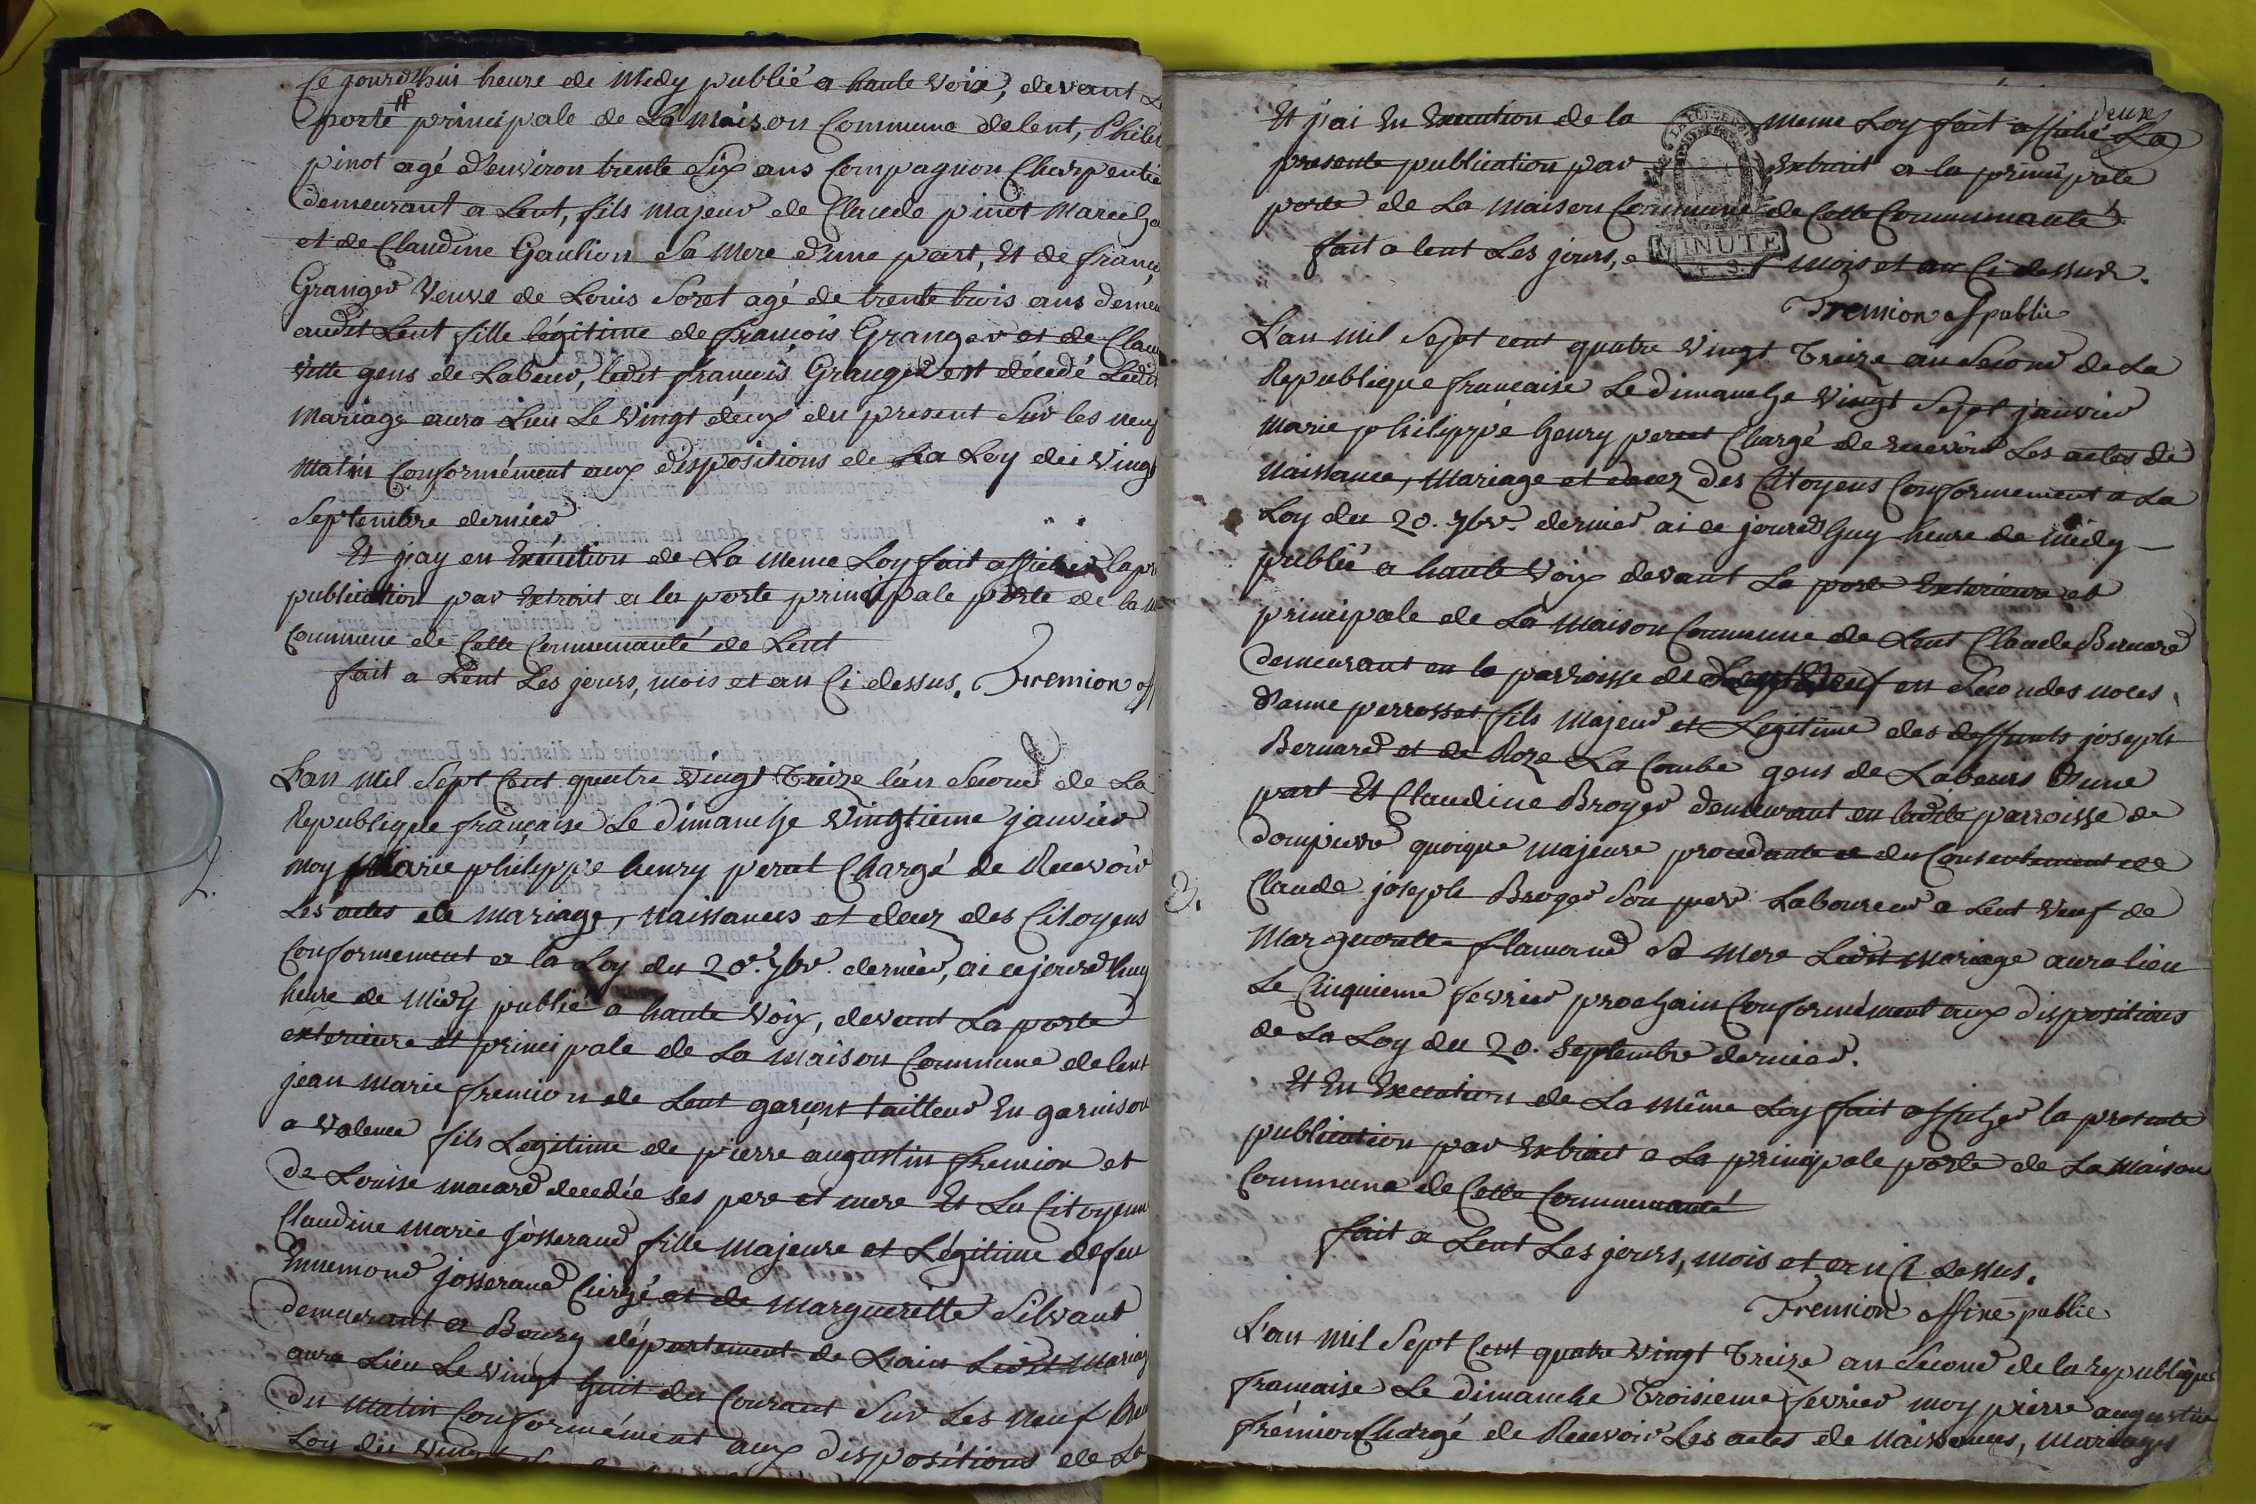 Ce jourd'huis heure de Midy publié a haute voix, devant La
porte principale de La Maison Commune de lent, Phili
pinot agé d'environ trente Six ans Compagnon Charpentie
demeurant a Lent, fils Majeur de Claude pinot Marecha
et de Claudine Gaulion Sa Mere d'une part, Et de franç
Granger Veuve de Louis Soret agé de trente trois ans demeu
audit Lent fille légitime de françois Granger et de Clau
Vitte gens de Labeur, ledit françois Granger est décédé Ledit
Mariage aura Lieu Le vingt deux du present Sur les neuf
Matin Conformément aux dispositions de La Loy du Vingt
Septembre dernier
Et j'ay en Exécution de La Meme Loy fait afficher la pr
publication par Extrait a la porte principale porte de la M
Commune de Cette Communauté de Lent
fait a Lent Les jours, mois et an Ci dessus. Fremion off
L'an Mil Sept Cent quatre Vingt Treize l'an Second de La
Republique française Le Dimanche Vingtieme janvier
2.
Moy Marie philippe henry perret Chargé de Recevoir
Les actes de Mariage, Naissances et decez des Citoyens
Conformement a la Loy du 20e. 7bre. dernier, ai ce jourd'huy
heure de Midy publié a haute Voix, devant La porte
exterieure et principale de La Maison Commune de lent
jean Marie fremion de Lent garçon tailleur En garnison
a Valence fils Legitime de pierre augustin fremion et
de Louise macard decedée ses pere et mere Et La Citoyenne
Claudine Marie josserand fille Majeure et Légitime de feu
Ennemond josserand Cirgé et de Marguerite Silvant
demeurant a Bourg département de L'ain Ledit Mariag
aura Lieu Le Vingt huit du Courant Sur Les Neuf heu
Du Matin Conformément aux dispositions de La
Loy du Vingt
deux
Et j'ai En Execution de la meme Loy fait affiché La
presente publication par Extrait a la principale
porte de La Maison Commune de Cette Communauté
MINUTE
fait a lent Les jours, mois et an Ci dessus.
Fremion off public
L'an Mil Sept cent quatre Vingt Treize an Second de La
Republique francaise Le dimanche Vingt Sept janvier
Marie philippe henry perret Chargé de recevoir Les actes de
Naissance, Mariage et decez des Citoyens Conformement a La
Loy du 20. 7bre. dernier ai ce jourd'huy heure de midy
publié a haute Voix devant La porte Exterieure et
principale de La Maison Commune de Lent Claude Bernard
demeurant en la parroisse de veuf en Secondes noces
D'anne perrosset fils Majeur et Legitime des deffunts joseph
Bernard et de Roze La Combe gens de Labeurs D'une
part Et Claudine Broyer demeurant en ladite parroisse de
dompierre quoique majeure procedante du Consentement de
3.
Claude joseph Broyer Son pere Laboureur a Lent Veuf de
Marguerette flamand Sa Mere Ledit Mariage aura lieu
Le Cinquieme fevrier prochain Conformément aux dispositions
de La Loy du 20. Septembre dernier.
Et En Execution de La même Loy fait afficher la presente
publication par Extrait a La principale porte de La Maison
Commune de Cette Communauté
fait a Lent Les jours, mois et an Ci dessus.
Fremion officie public
L'an Mil Sept Cent quatre Vingt Treize an Second de la republique
francaise Le dimanche Troisieme fevrier moy pierre augustin
frémion Chargé de Recevoir Les actes de Naissances, Mariages